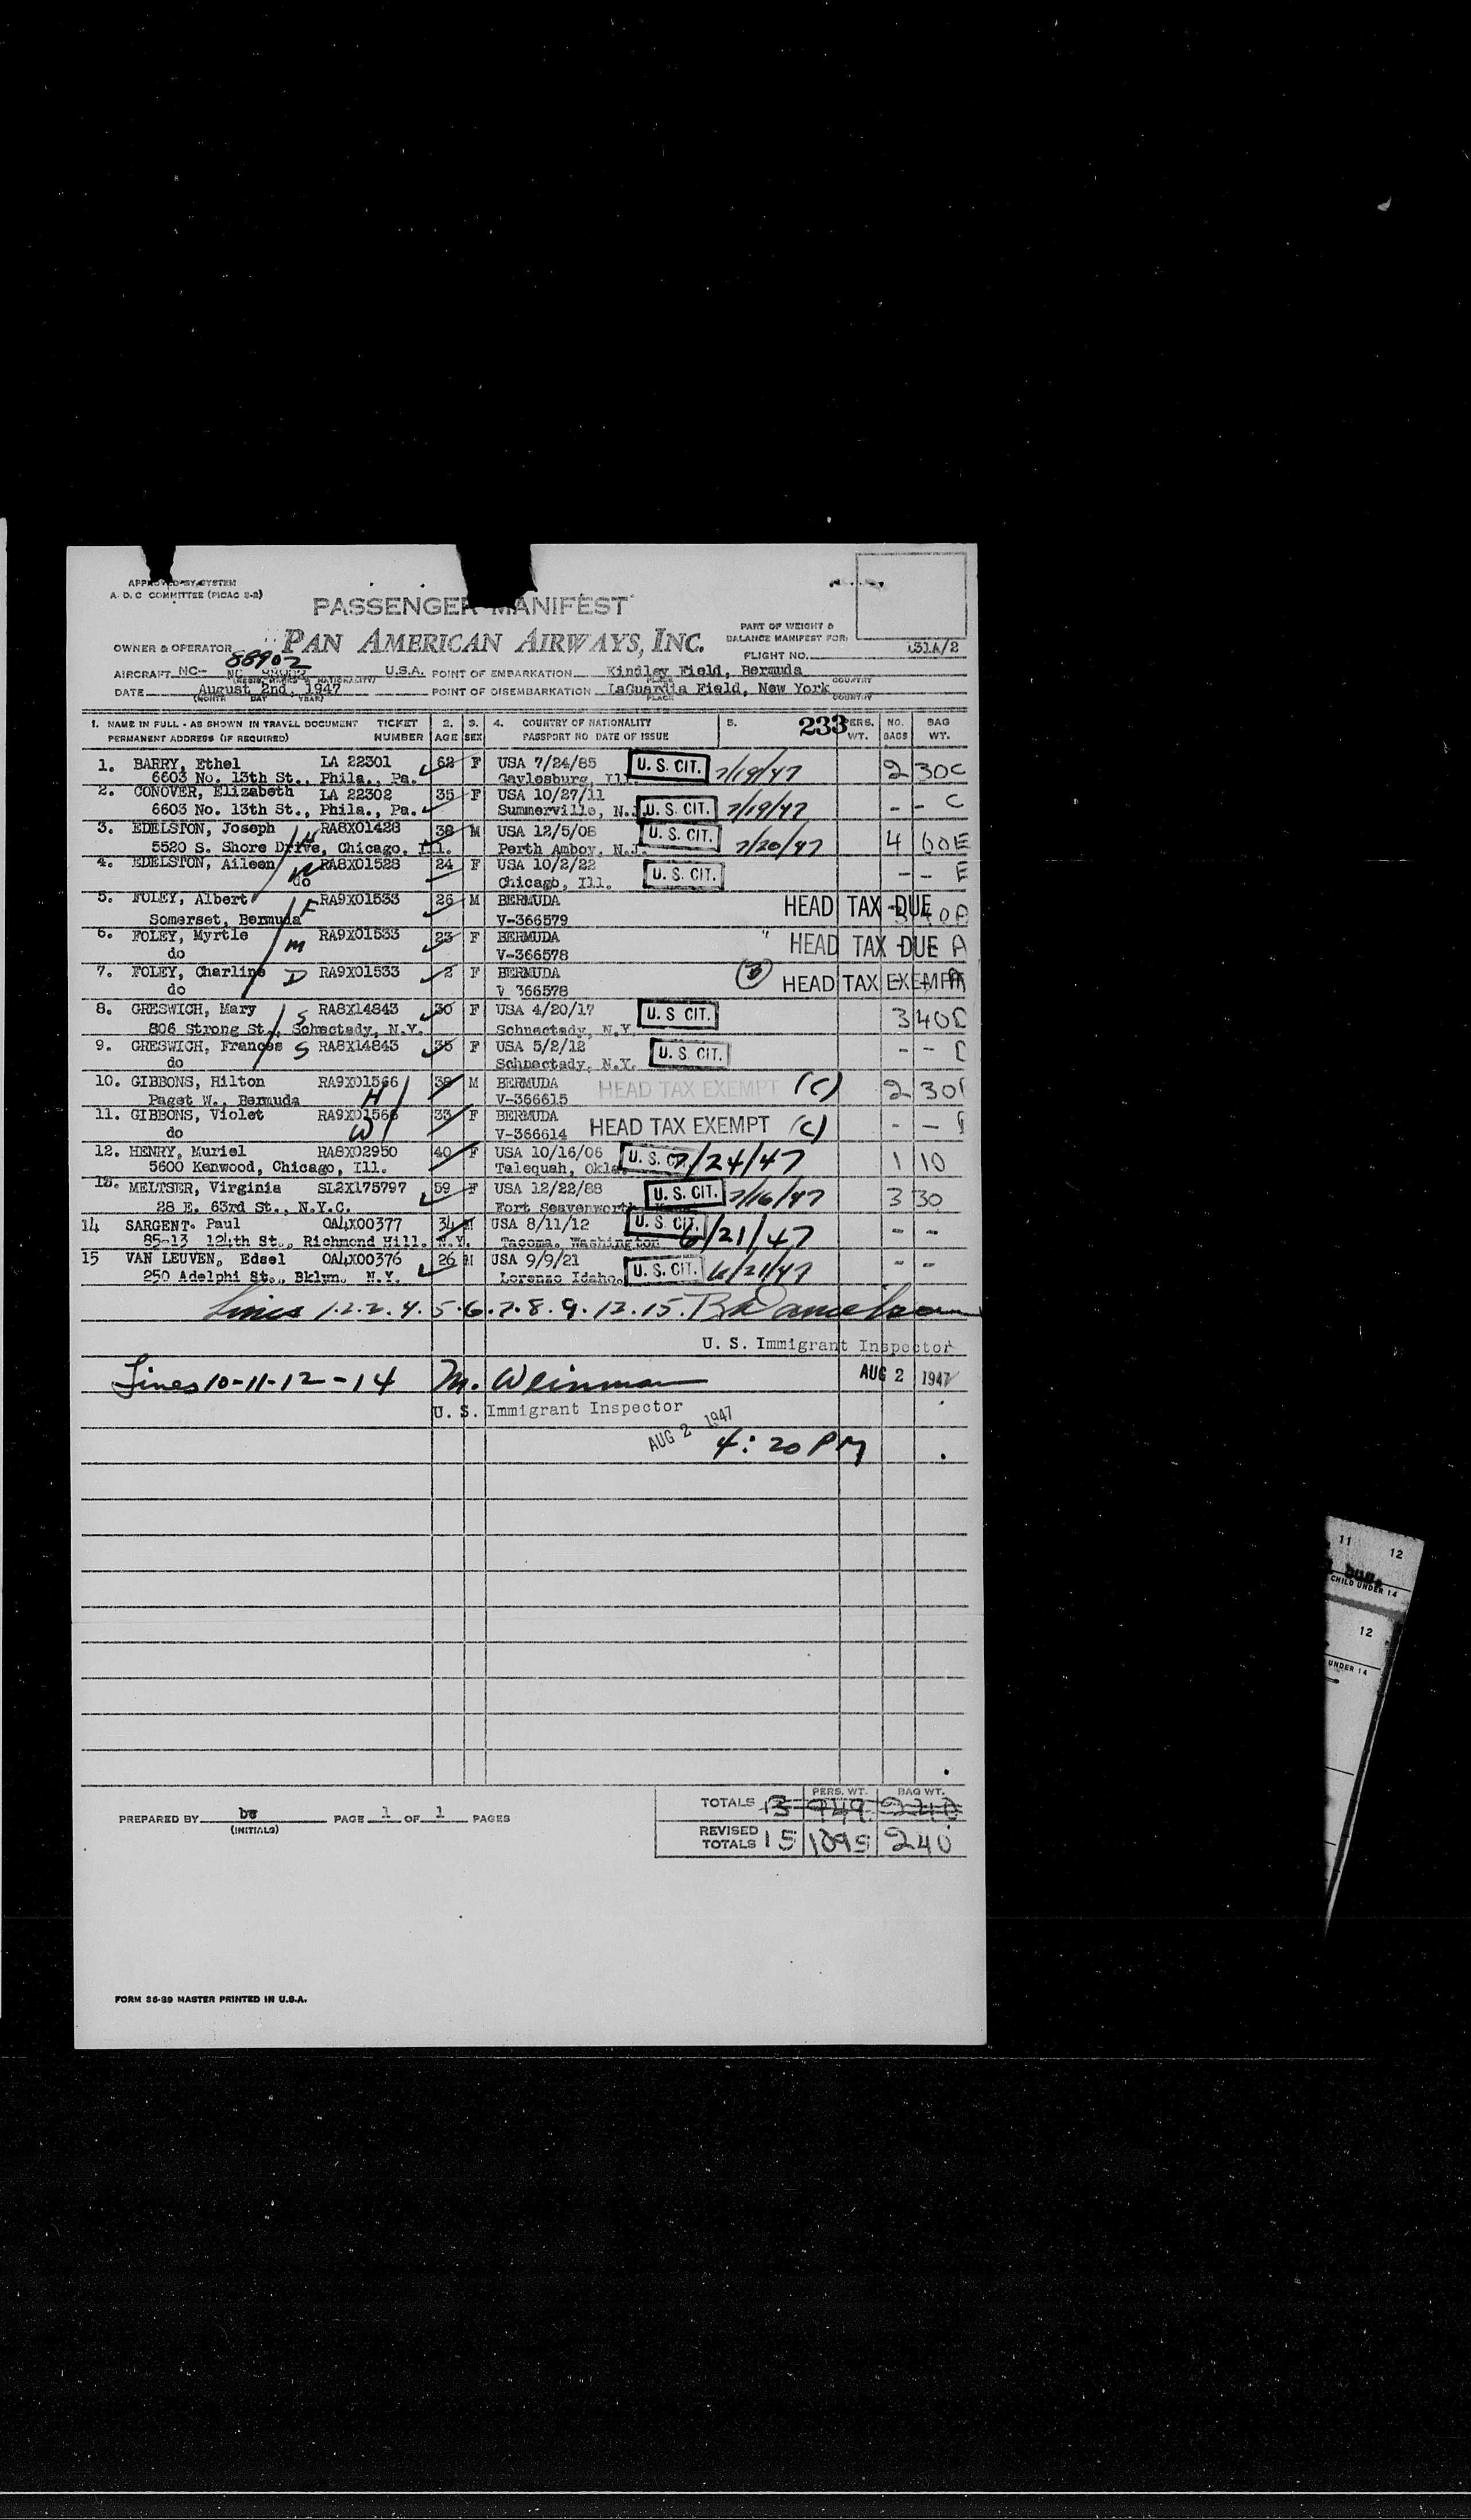 APPROVED BY SYSTEM
A. D. C COMMITTEE (PICAC 3-2)
PASSENGER MANIFEST
OWNER & OPERATOR PAN AMERICAN AIRWAYS, INC.
PART OF WEIGHT &
BALANCE MANIFEST FOR:
FLIGHT NO. 131A/2
88902
AIRCRAFT NC- U.S.A. POINT OF EMBARKATION Kindley Field, Bermuda
PLACE COUNTRY
DATE August 2nd, 1947 POINT OF DISEMBARKATION LaGuardia Field, New York
(MONTH DAY YEAR) PLACE COUNTRY
1. NAME IN FULL - AS SHOWN IN TRAVEL DOCUMENT TICKET 2. 3. 4. COUNTRY OF NATIONALITY 5. 233 PERS. NO. BAG
PERMANENT ADDRESS (IF REQUIRED) NUMBER AGE SEX PASSPORT NO DATE OF ISSUE WT. BAGS WT.
1. BARRY, Ethel LA 22301 62 F USA 7/24/85 U. S. CIT. 7/19/47 2 30 C
6603 No. 13th St., Phila., Pa. Gaylesburg, Ill.
2. CONOVER, Elizabeth LA 22302 35 F USA 10/27/11 U. S. CIT. 7/19/47 - - C
6603 No. 13th St., Phila., Pa. Summerville, N.J.
3. EDELSTON, Joseph H RA8X01428 38 M USA 12/5/08 U. S. CIT. 7/20/47 4 60 E
5520 S. Shore Drive, Chicago, Ill. Perth Amboy, N.J.
4. EDELSTON, Aileen W RA8X01528 24 F USA 10/2/22 U. S. CIT. - - E
do Chicago, Ill.
5. FOLEY, Albert F RA9X01533 26 M BERMUDA HEAD TAX DUE
Somerset, Bermuda V-366579
6. FOLEY, Myrtle M RA9X01533 23 F BERMUDA " HEAD TAX DUE A
do V-366578
7. FOLEY, Charline D RA9X01533 2 F BERMUDA (3) HEAD TAX EXEMPT A
do V 366578
8. GRESWICH, Mary S RA8X14843 30 F USA 4/20/17 U. S CIT. 3 40 D
806 Strong St., Schectady, N.Y. Schnectady, N.Y.
9. GRESWICH, Frances S RA8X14843 35 F USA 5/2/12 U. S. CIT. - -
do Schnectady, N.Y.
10. GIBBONS, Hilton RA9X01566 H M BERMUDA HEAD TAX EXEMPT (C) 2 30
Paget W., Bermuda V-366615
11. GIBBONS, Violet RA9X01566 W 33 F BERMUDA HEAD TAX EXEMPT (C) - -
do V-366614
12. HENRY, Muriel RA8X02950 40 F USA 10/16/06 U. S. CIT. 7/24/47 1 10
5600 Kenwood, Chicago, Ill. Talequah, Okla.
13. MELTSER, Virginia SL2X175797 59 F USA 12/22/88 U. S. CIT. 7/16/47 3 30
28 E. 63rd St., N.Y.C. Fort Seavenworth
14 SARGENT. Paul OA4X00377 34 M USA 8/11/12 U. S. CIT. 6/21/47 - -
85-13 124th St., Richmond Hill. N.Y. Tacoma. Washington
15 VAN LEUVEN, Edsel OA4X00376 26 M USA 9/9/21 U. S. CIT. 6/21/47 - -
250 Adelphi St., Bklyn. N.Y. Lorenzo Idaho.
Lines 1.2.2.4.5.6.7.8.9.12.15.
U. S. Immigrant Inspector
Lines 10-11-12-14 M. Weinman AUG 2 1947
U. S. Immigrant Inspector
AUG 2 1947
4:20 PM
PERS. WT. BAG WT.
TOTALS 13 949 240
PREPARED BY be PAGE 1 OF 1 PAGES
(INITIALS)
REVISED
TOTALS 15 1295 240
FORM 36-39 MASTER PRINTED IN U.S.A.
11 12
bus.
CHILD UNDER 14
12
UNDER 14